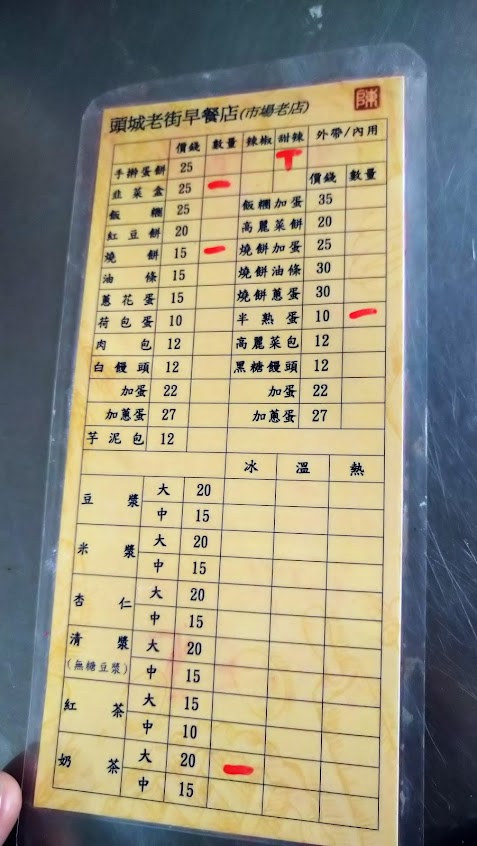 頭城老街早餐店(市場老店) 陳
價錢 數量 辣椒 甜辣 外帶/內用
手擀蛋餅 25 價錢 數量
韭菜盒 25
飯糰 25 飯糰加蛋 35
紅豆餅 20 高麗菜餅 20
燒餅 15 燒餅加蛋 25
油條 15 燒餅油條 30
蔥花蛋 15 燒餅蔥蛋 30
荷包蛋 10 半熟蛋 10
肉包 12 高麗菜包 12
白饅頭 12 黑糖饅頭 12
加蛋 22 加蛋 22
加蔥蛋 27 加蔥蛋 27
芋泥包 12
冰 溫 熱
豆漿 大 20
中 15
米漿 大 20
中 15
杏仁 大 20
中 15
清漿 大 20
(無糖豆漿) 中 15
紅茶 大 15
中 10
奶茶 大 20
中 15